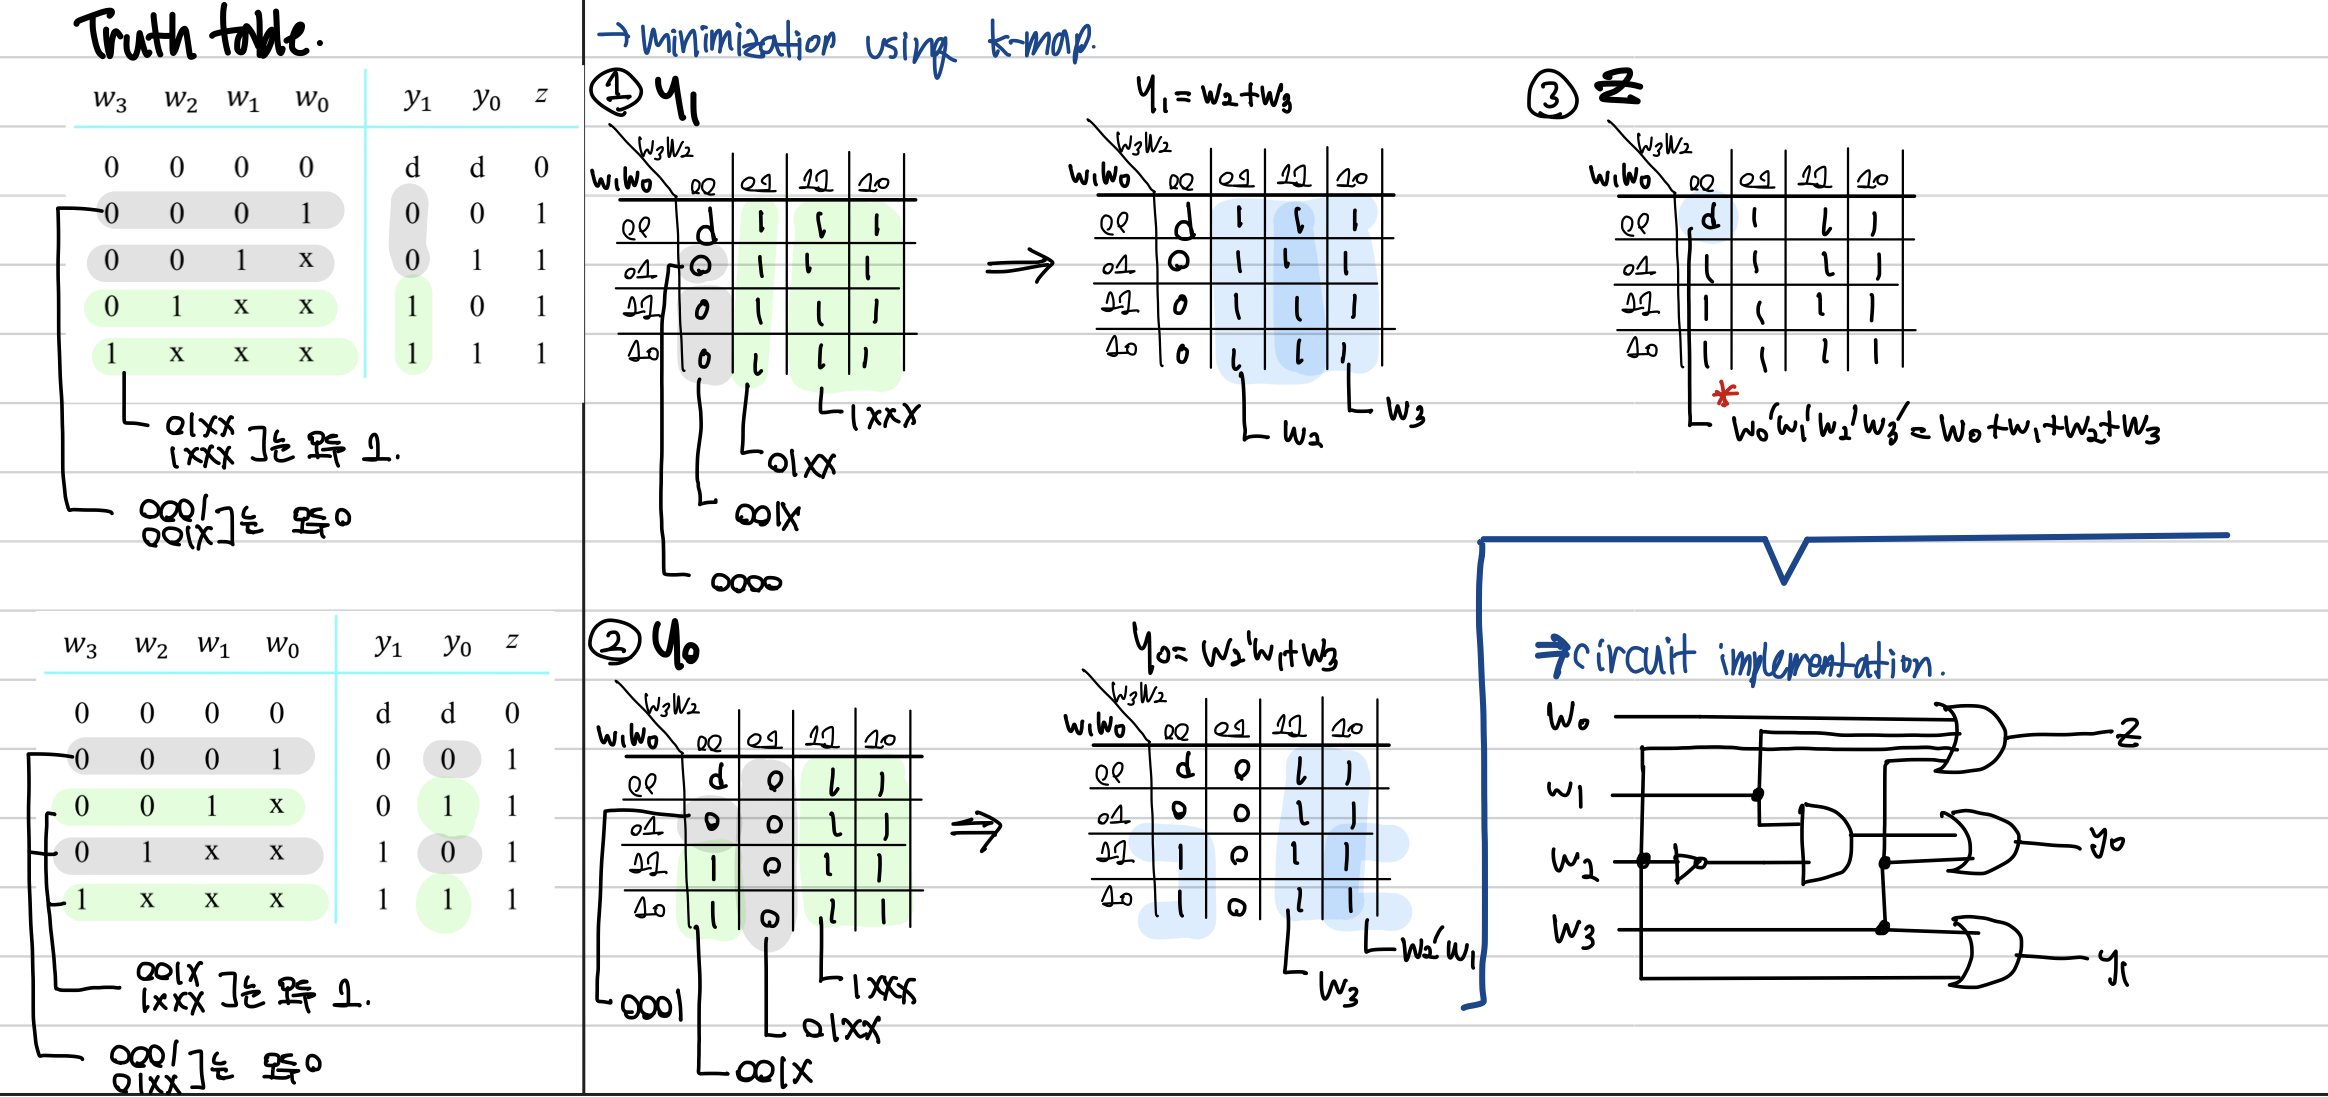 Truth table.
w3 w2 w1 w0 y1 y0 z
0 0 0 0 d d 0
0 0 0 1 0 0 1
0 0 1 x 0 1 1
0 1 x x 1 0 1
1 x x x 1 1 1
01xx
1xxx ]는 모두 1.
0001
001x ]는 모두 0
w3 w2 w1 w0 y1 y0 z
0 0 0 0 d d 0
0 0 0 1 0 0 1
0 0 1 x 0 1 1
0 1 x x 1 0 1
1 x x x 1 1 1
001x
1xxx ]는 모두 1.
0001
01xx ]는 모두 0
→ minimization using k-map.
① y1
w3w2
w1w0 00 01 11 10
00 d 1 1 1
01 0 1 1 1
11 0 1 1 1
10 0 1 1 1
1xxx
01xx
001x
0000
⇒
y1 = w2+w3
w3w2
w1w0 00 01 11 10
00 d 1 1 1
01 0 1 1 1
11 0 1 1 1
10 0 1 1 1
w3
w2
③ z
w3w2
w1w0 00 01 11 10
00 d 1 1 1
01 1 1 1 1
11 1 1 1 1
10 1 1 1 1
*
w0'w1'w2'w3' = w0+w1+w2+w3
② y0
w3w2
w1w0 00 01 11 10
00 d 0 1 1
01 0 0 1 1
11 1 0 1 1
10 1 0 1 1
1xxx
0001
01xx
001x
⇒
y0 = w2'w1+w3
w3w2
w1w0 00 01 11 10
00 d 0 1 1
01 0 0 1 1
11 1 0 1 1
10 1 0 1 1
w2'w1
w3
⇒ circuit implementation.
w0
z
w1
y0
w2
w3
y1